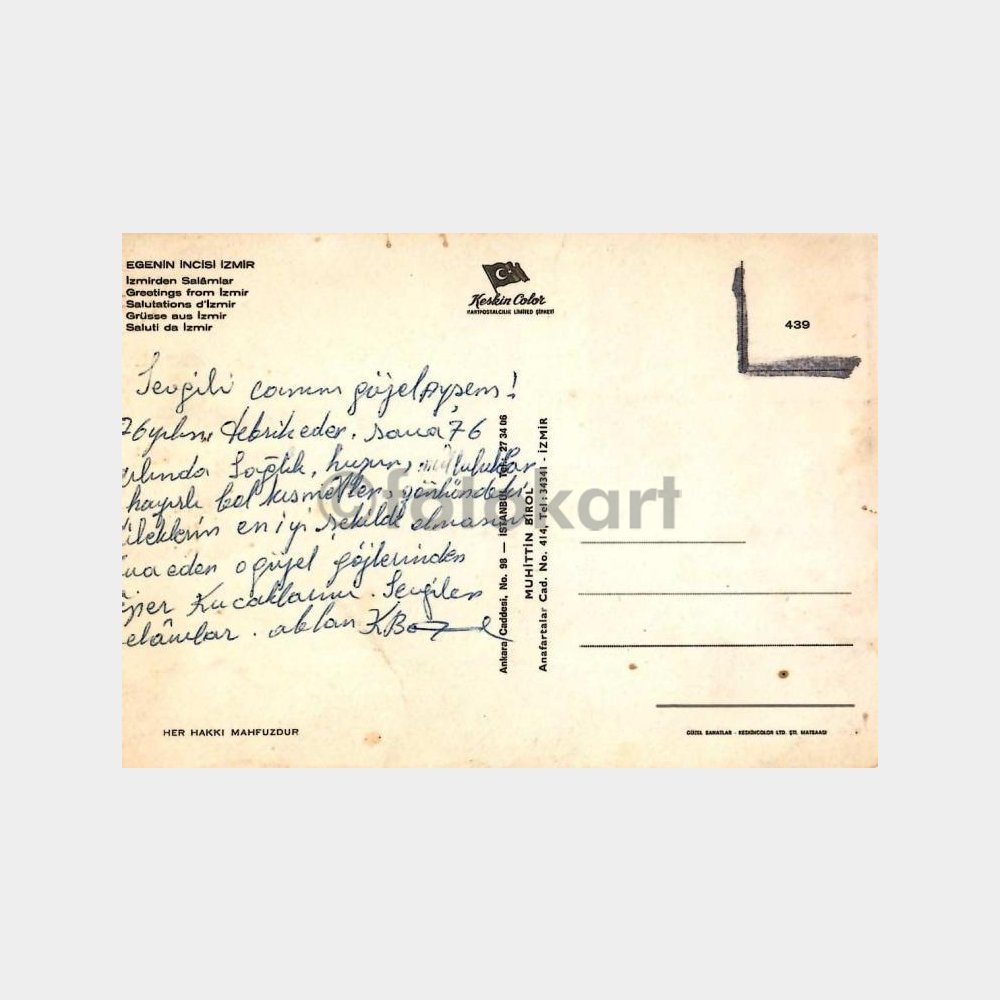 EGENİN İNCİSİ İZMİR
İzmirden Salâmlar
Greetings from İzmir
Salutations d'İzmir
Grüsse aus İzmir
Saluti da İzmir
Keskin Color
KARTPOSTALCILIK LİMİTED ŞİRKETİ
439
Sevgili canım güzel Ayşem!
76 yılını tebrik eder. sana 76
yılında Sağlık, huzur, mutluluklar
hayırlı bol kısmetler, gönlündeki
dileklerin en iyi şekilde olmasını
dua eden o güzel gözlerinden
öper Kucaklarım. Sevgiler
selâmlar. ablan K.Boz
Ankara Caddesi, No. 98 — İSTANBUL Tel: 27 34 06
MUHİTTİN BİROL
Anafartalar Cad. No. 414, Tel: 34341 - İZMİR
©fotokart
HER HAKKI MAHFUZDUR
GÜZEL SANATLAR - KESKİNCOLOR LTD. ŞTİ. MATBAASI